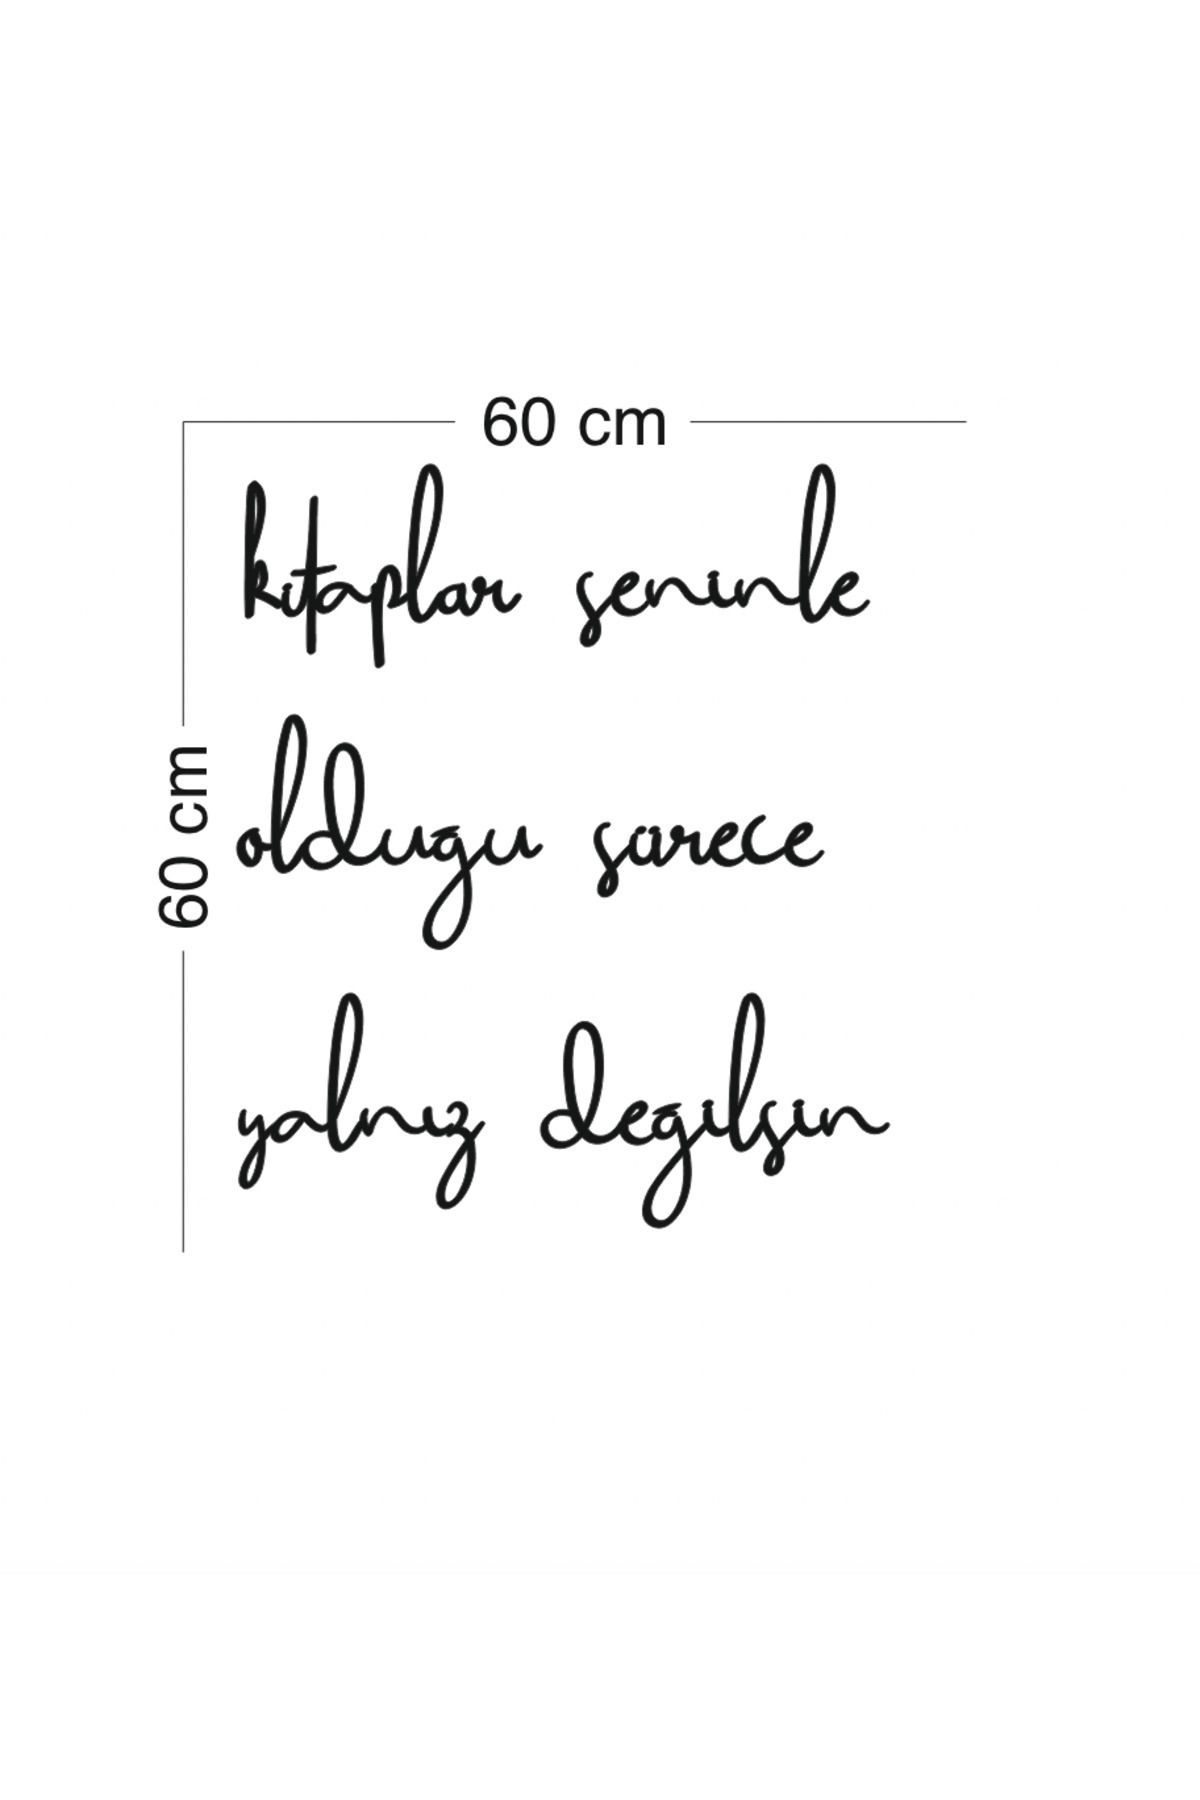 60 cm
60 cm
kitaplar seninle
olduğu sürece
yalnız değilsin